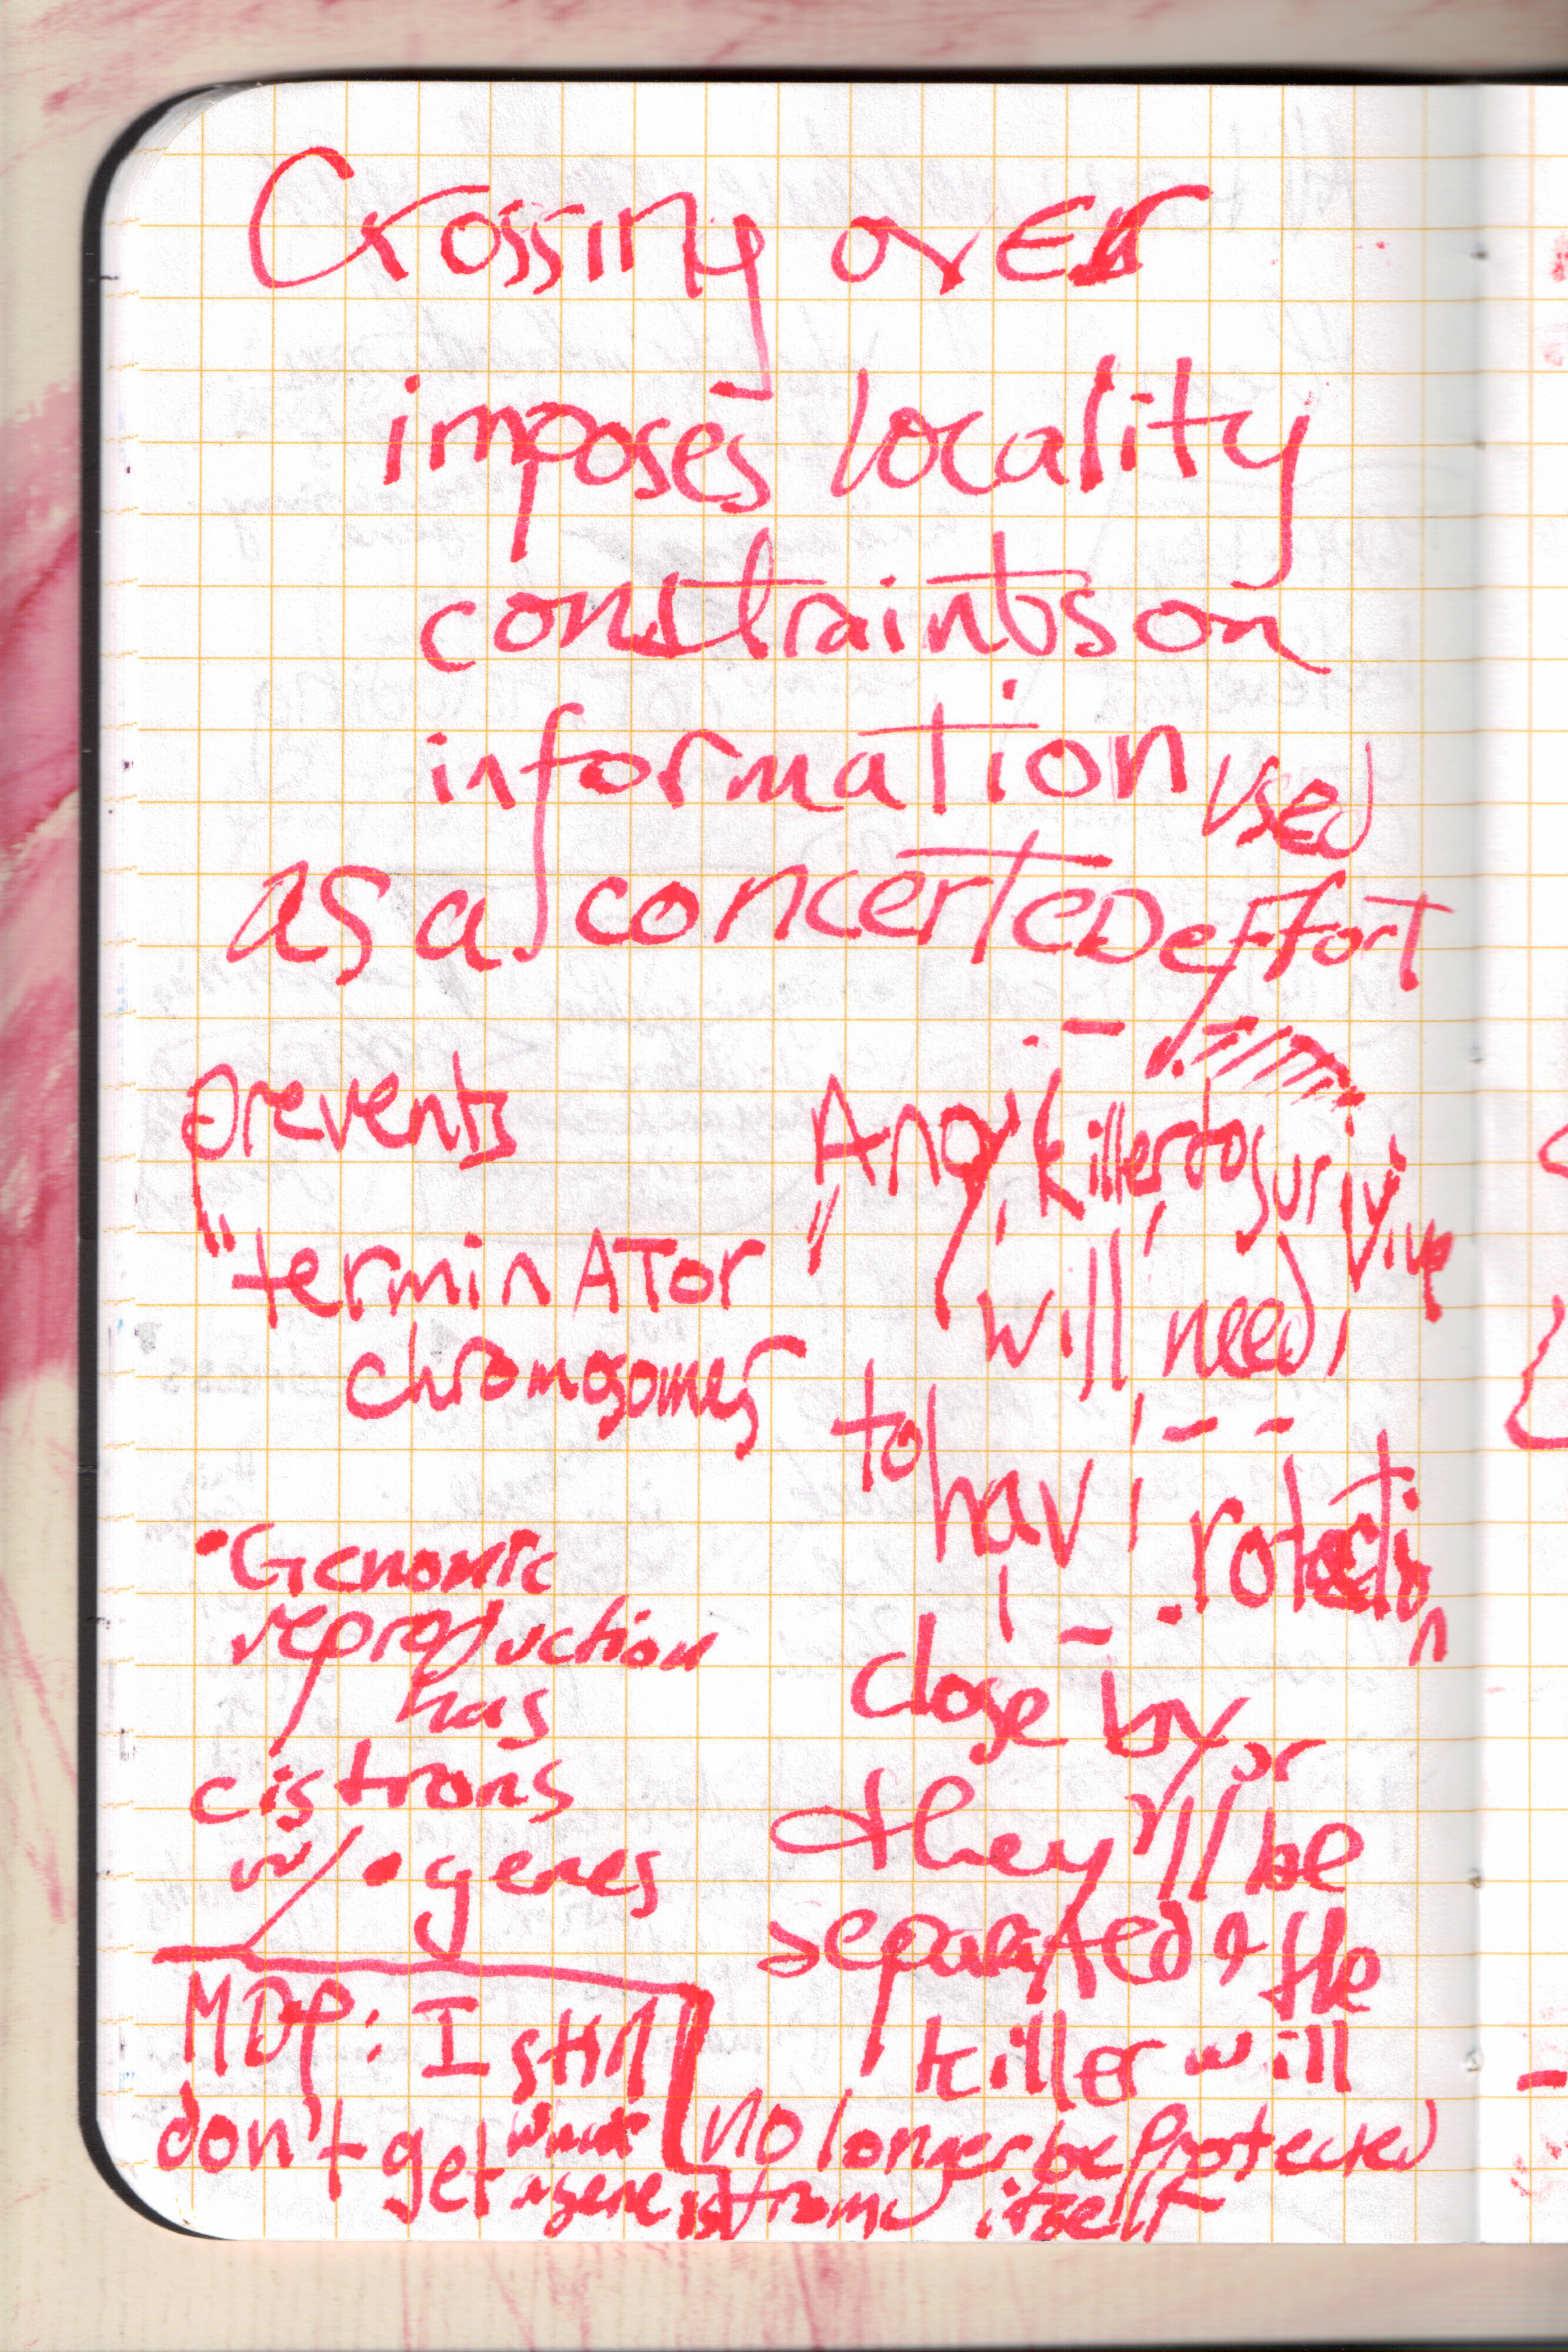 Crossing over
imposes locality
constraints on
information used
as a concerted effort
prevents
"terminator
chromosomes
•Genomic
reproduction
has
cistrons
w/•genes
MDP: I still
don't get what
a gene is
Any killer to surivive
will need
to hav rotection
close by or
they'll be
separated & the
killer will
no longer be protected
from itself